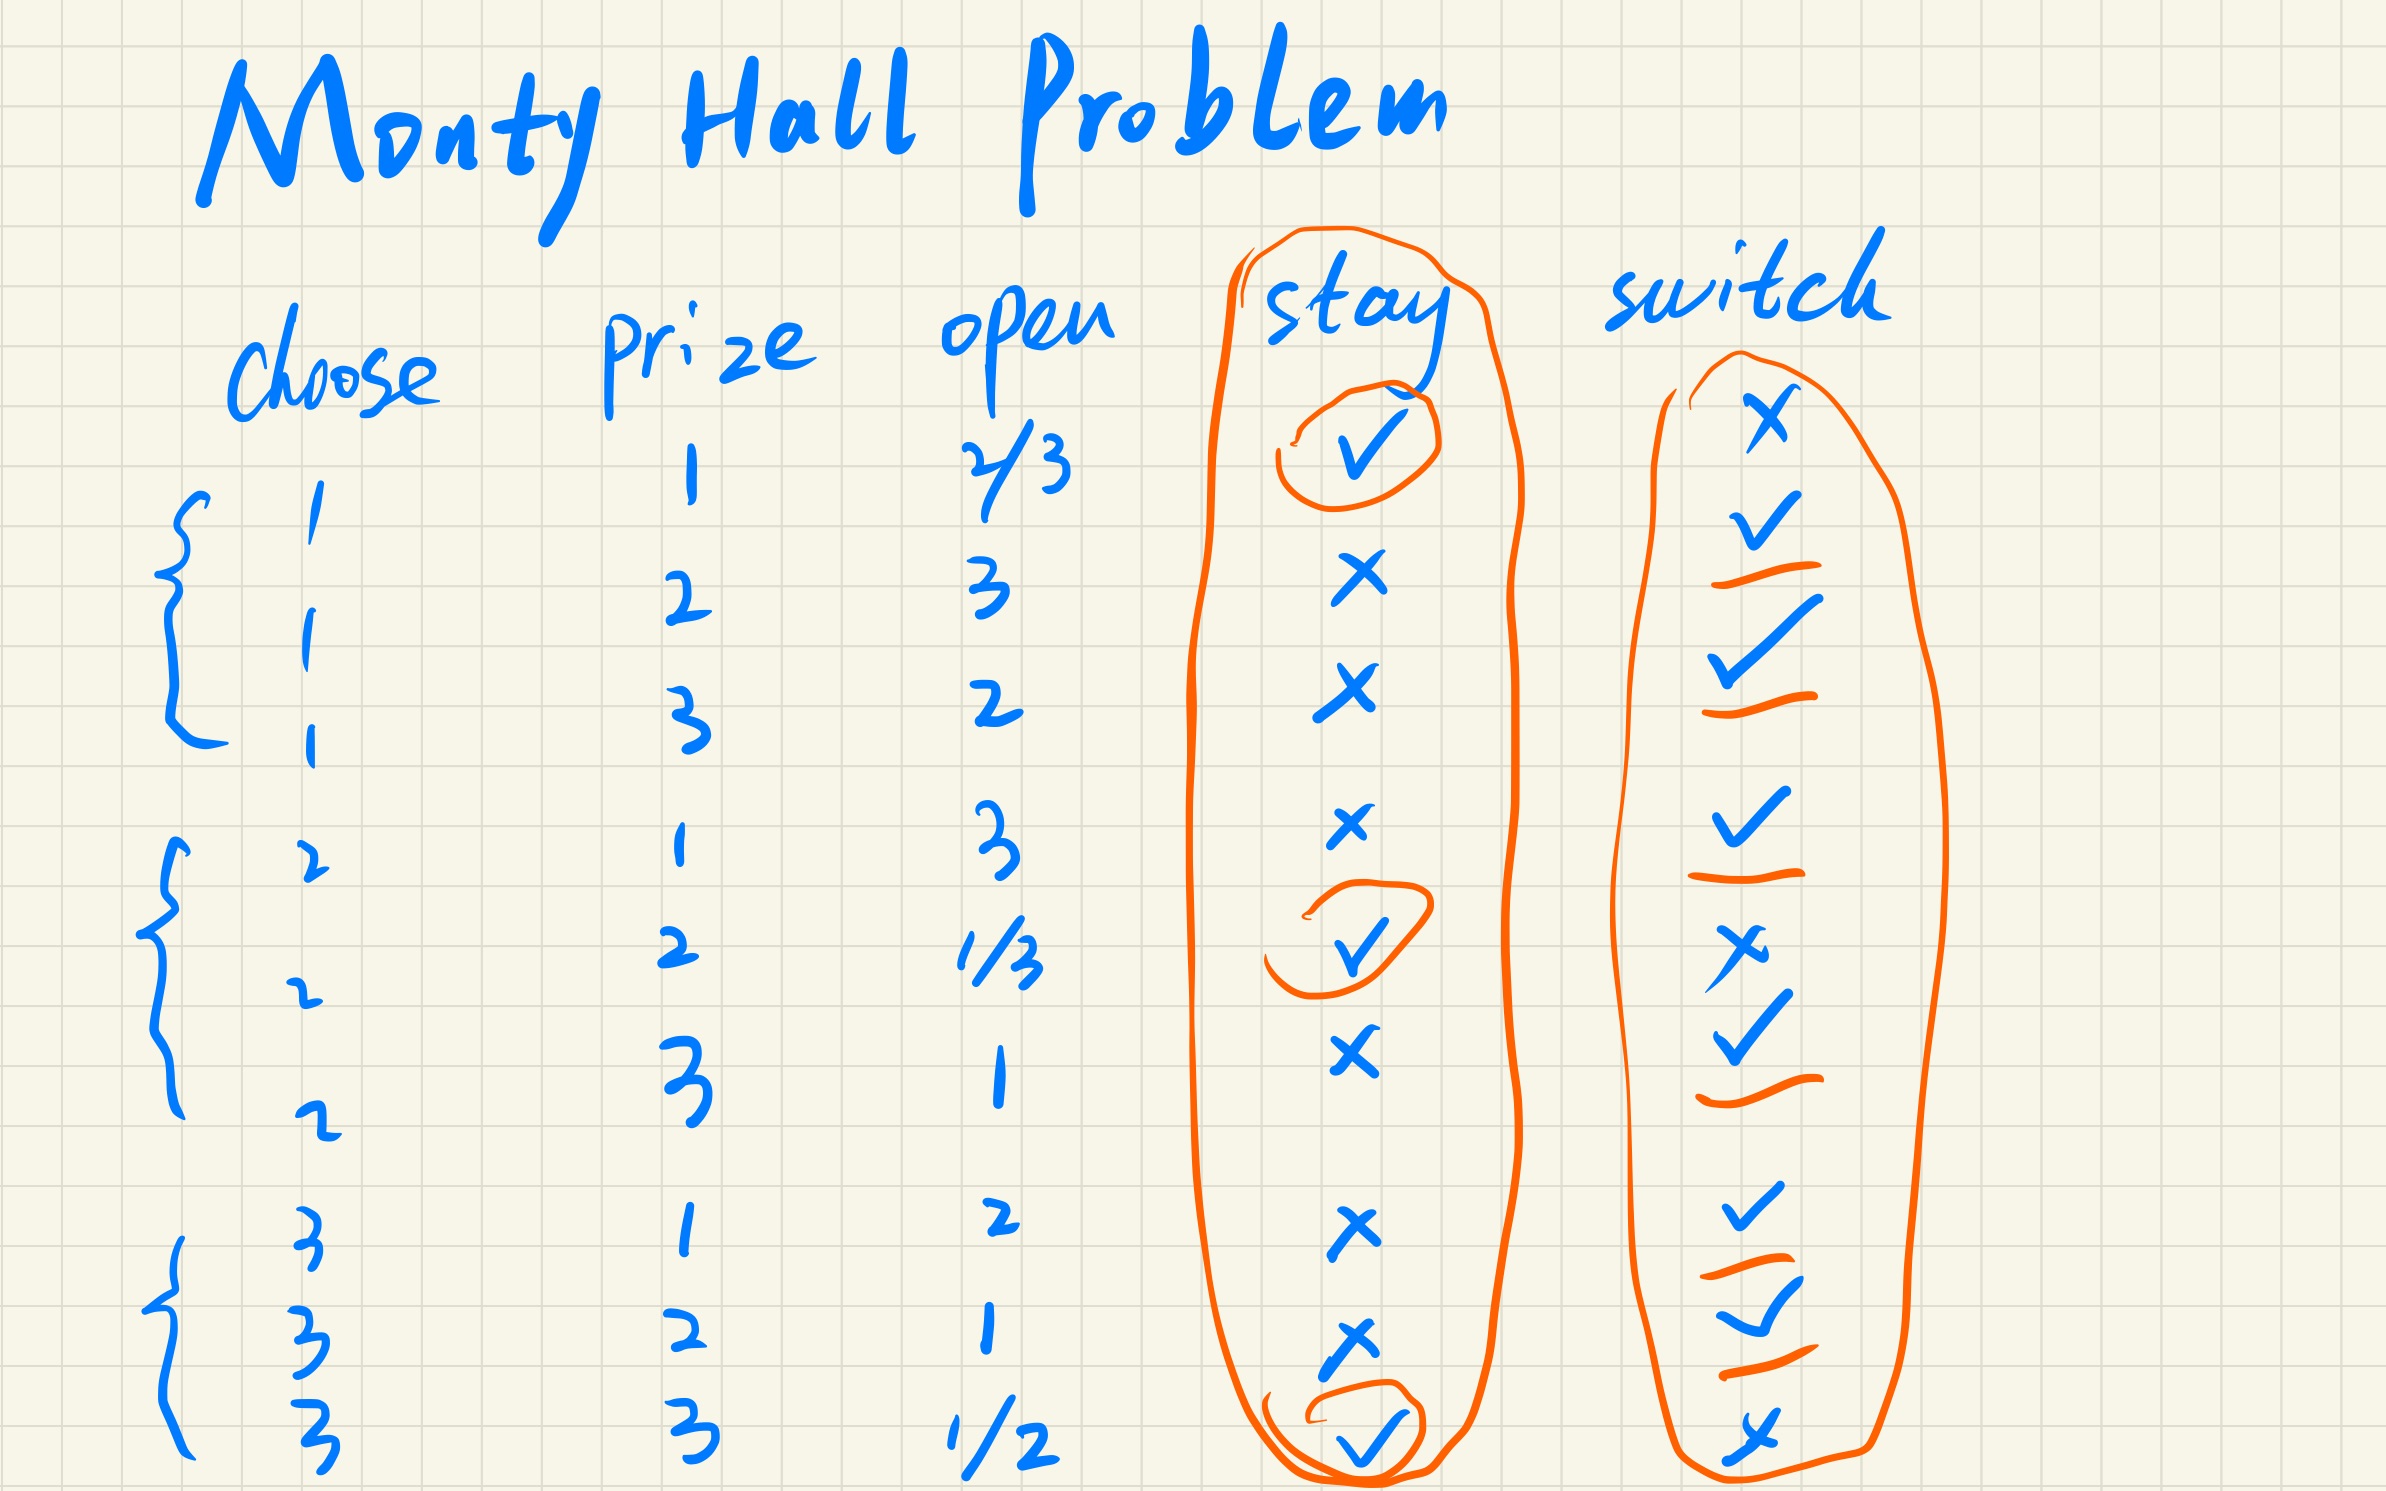 Monty Hall Problem
chose prize open stay switch
1 1 2/3 ✓ ✗
1 2 3 ✗ ✓
1 3 2 ✗ ✓
2 1 3 ✗ ✓
2 2 1/3 ✓ ✗
2 3 1 ✗ ✓
3 1 2 ✗ ✓
3 2 1 ✗ ✓
3 3 1/2 ✓ ✗